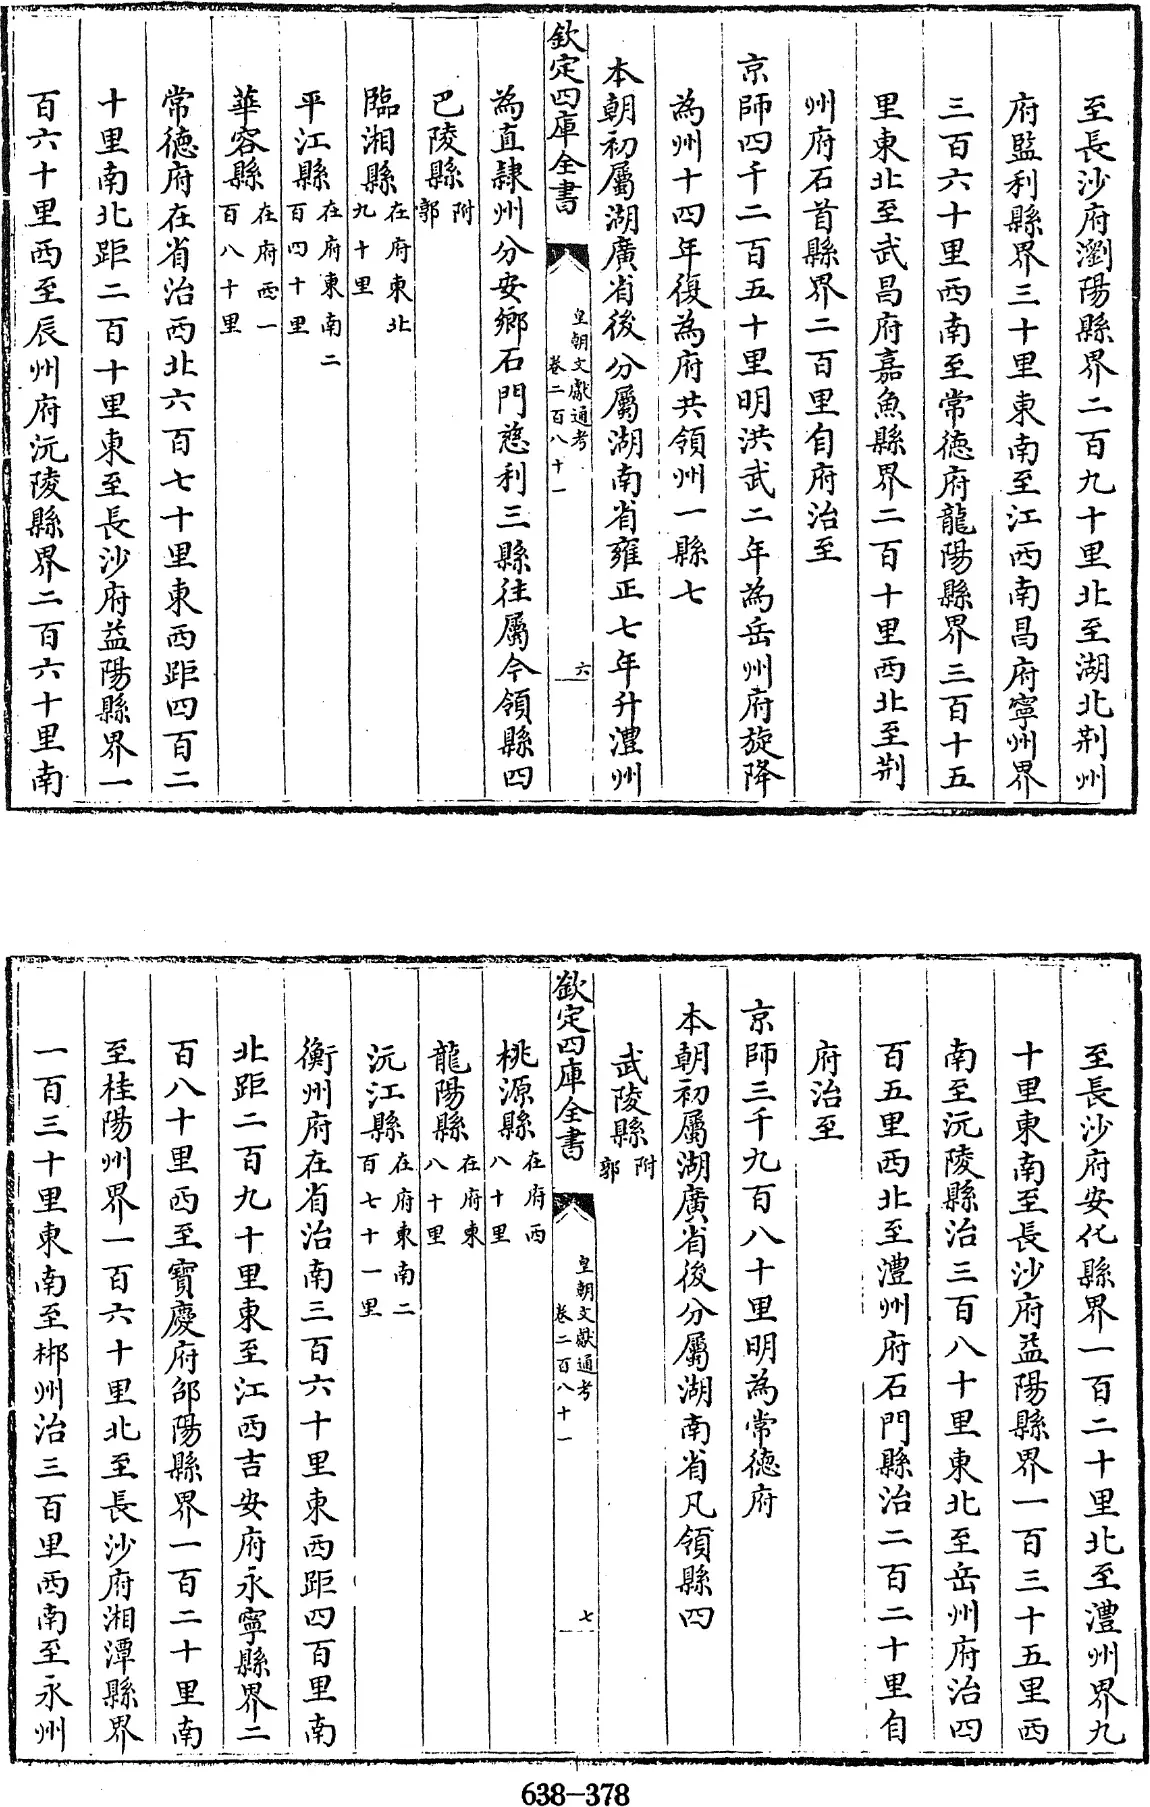 至長沙府瀏陽縣界二百九十里北至湖北荆州
府監利縣界三十里東南至江西南昌府寧州界
三百六十里西南至常德府龍陽縣界三百十五
里東北至武昌府嘉魚縣界二百十里西北至荆
州府石首縣界二百里自府治至
京師四千二百五十里明洪武二年為岳州府旋降
為州十四年復為府共領州一縣七
本朝初屬湖廣省後分屬湖南省雍正七年升澧州
欽定四庫全書
皇朝文獻通考
卷二百八十一
六
為直隸州分安鄉石門慈利三縣往屬今領縣四
巴陵縣附郭
臨湘縣在府東北九十里
平江縣在府東南二百四十里
華容縣在府西一百八十里
常德府在省治西北六百七十里東西距四百二
十里南北距二百十里東至長沙府益陽縣界一
百六十里西至辰州府沅陵縣界二百六十里南
至長沙府安化縣界一百二十里北至澧州界九
十里東南至長沙府益陽縣界一百三十五里西
南至沅陵縣治三百八十里東北至岳州府治四
百五里西北至澧州府石門縣治二百二十里自
府治至
京師三千九百八十里明為常德府
本朝初屬湖廣省後分屬湖南省凡領縣四
武陵縣附郭
欽定四庫全書
皇朝文獻通考
卷二百八十一
七
桃源縣在府西八十里
龍陽縣在府東八十里
沅江縣在府東南二百七十一里
衡州府在省治南三百六十里東西距四百里南
北距二百九十里東至江西吉安府永寧縣界二
百八十里西至寶慶府邵陽縣界一百二十里南
至桂陽州界一百六十里北至長沙府湘潭縣界
一百三十里東南至郴州治三百里西南至永州
638-378